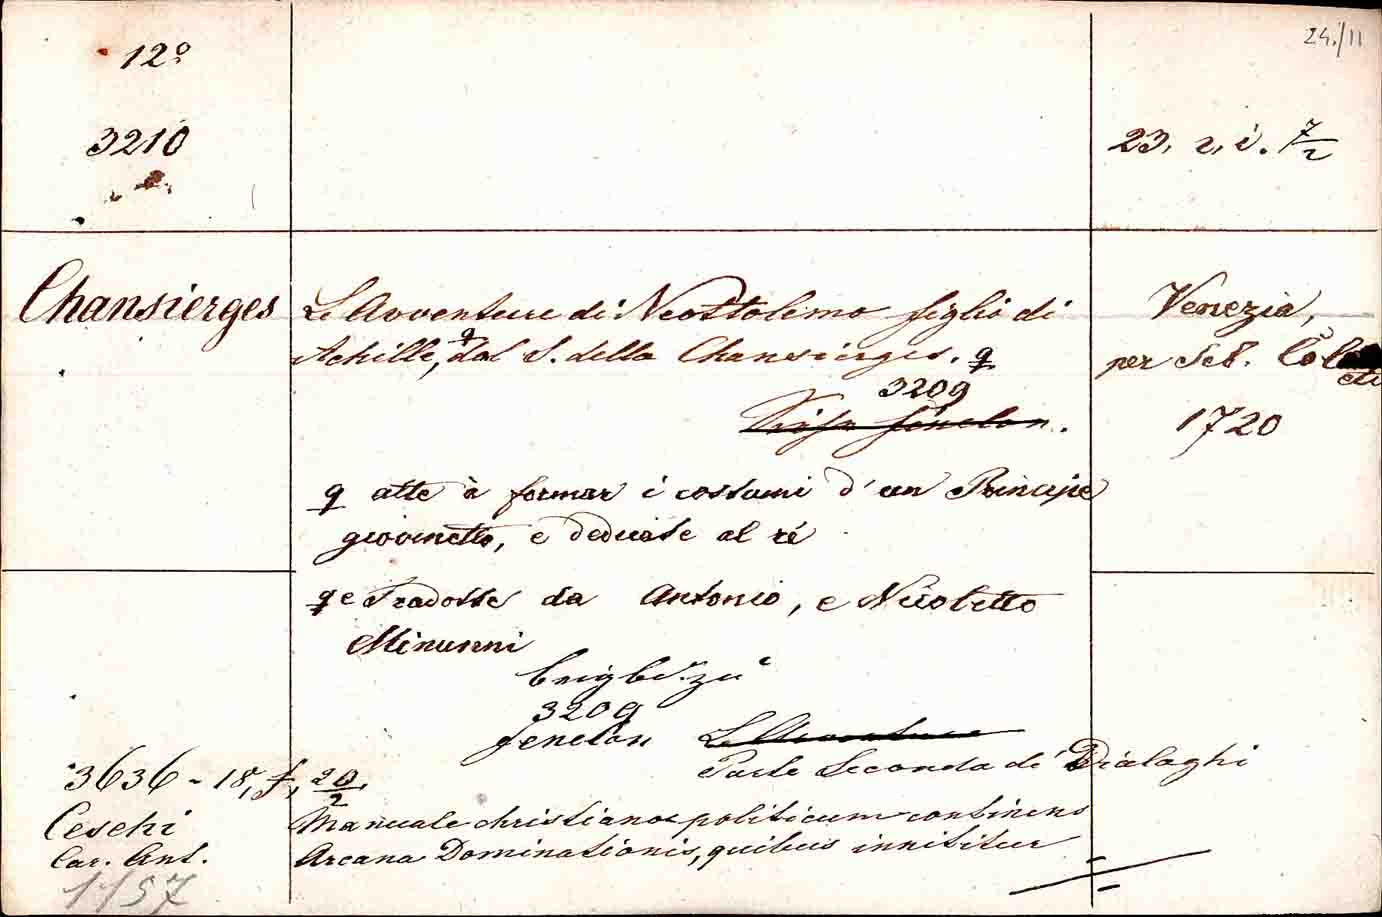 24./11
12º
3210
23, 2, i. 7/2
Chansierges
Le Avventure di Neottolemo figlio di
Achille, dal S. della Chansierges.
3209
Fénelon.
Venezia,
per Seb. Coleti
1720
atte à formar i costumi d'un Principe
giovinetto, e dedicate al ré
e Tradotte da Antonio, e Nicoletto
Minunni
beigb. zu
3209
Fenelon Le Avventure
Parte Seconda de' Dialoghi
3636 - 18, f, 20/2.
Ceschi
Car. Ant.
Manuale christiano politicum continens
Arcana Dominationis, quibus innititur
1/57